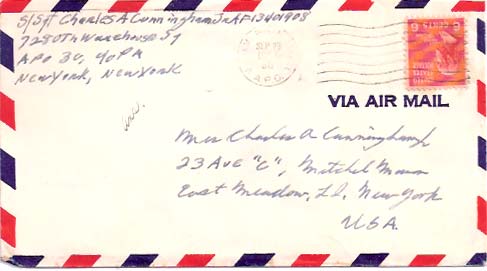 S/Sgt Charles A Cunningham Jr AF13401908
7280Th Warehouse Sq
APO 30, % PM
New York, New York
SEP 19
A.P.O.
6 CENTS 6
UNITED STATES POSTAGE
VIA AIR MAIL
Mrs Charles A Cunningham Jr
23 Ave "C", Mitchel Manor
East Meadow, L.I. New York
U.S.A.